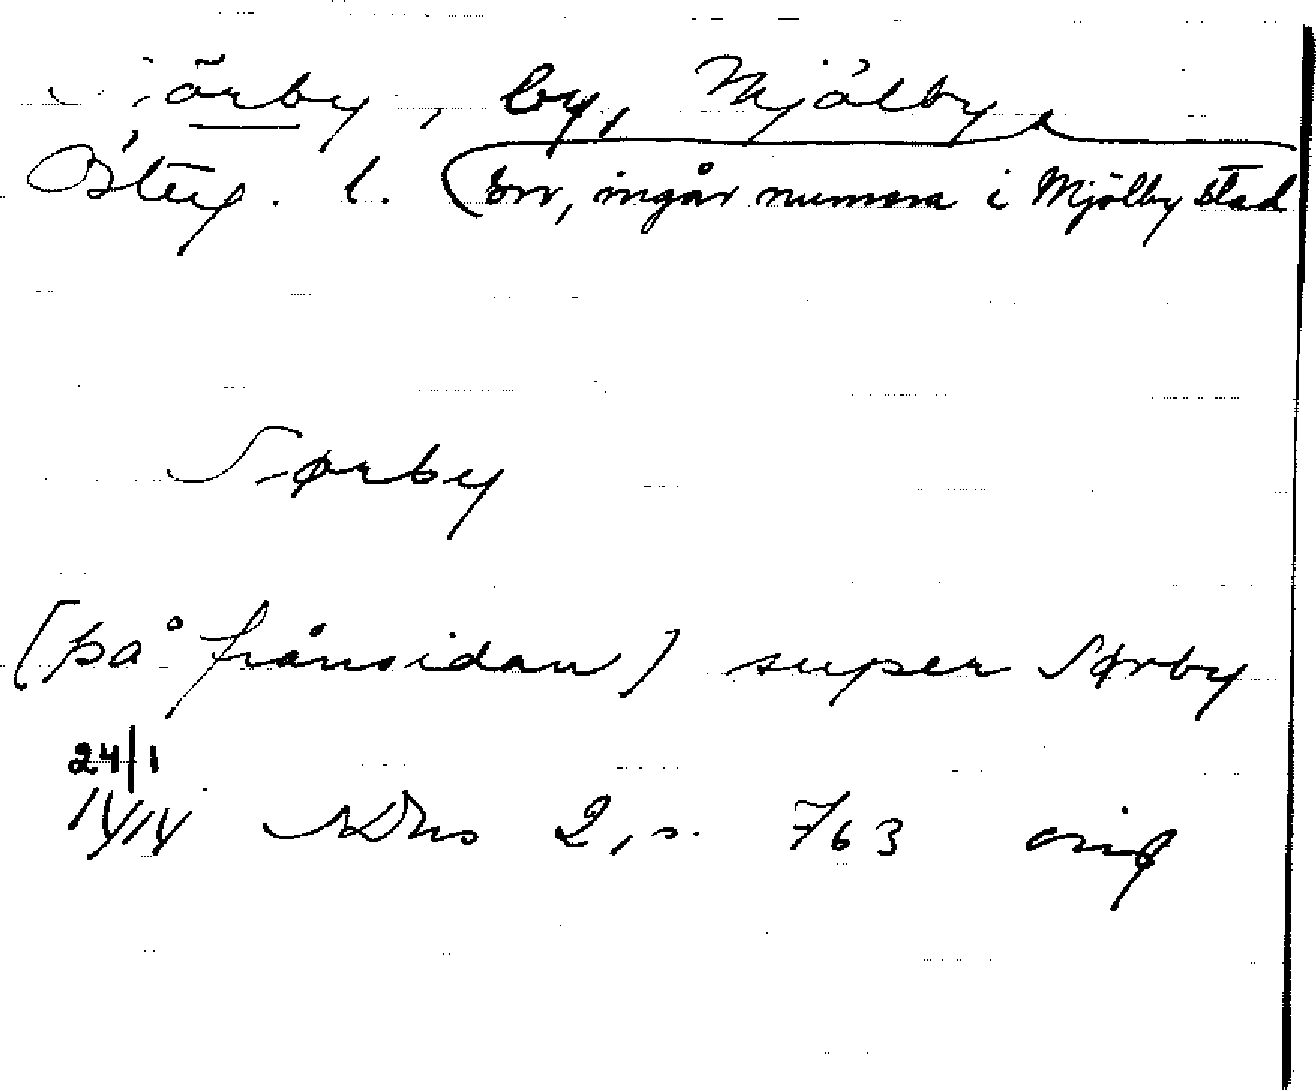 Sörby, by, Mjölby
Österg. l. (snr, ingår numera i Mjölby stad
Sørby
[på frånsidan] super Sørby
24/1
1414 SDns 2, s. 763 orig